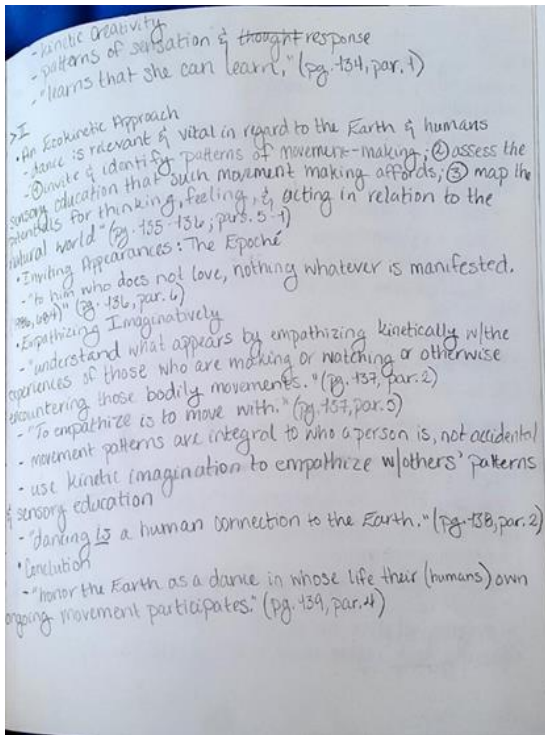 - kinetic creativity
- patterns of sensation & thought response
- "learns that she can learn," (pg. 134, par. 1)
>I
• An Ecokinetic Approach
- dance is relevant & vital in regard to the Earth & humans
- "① invite & identify patterns of movement-making; ② assess the
sensory education that such movement making affords; ③ map the
potentials for thinking, feeling, &, acting in relation to the
natural world" (pg. 135-136, pars. 5-1)
• Inviting Appearances: The Epoché
- "to him who does not love, nothing whatever is manifested.
(1986, 684)" (pg. 136, par. 6)
• Empathizing Imaginatively
- "understand what appears by empathizing kinetically w/the
experiences of those who are making or watching or otherwise
encountering those bodily movements." (pg. 137, par. 2)
- "To empathize is to move with." (pg. 137, par. 3)
- movement patterns are integral to who a person is, not accidental
- use kinetic imagination to empathize w/others' patterns
& sensory education
- "dancing is a human connection to the Earth." (pg. 138, par. 2)
• Conclution
- "honor the Earth as a dance in whose life their (humans) own
ongoing movement participates." (pg. 139, par. 4)